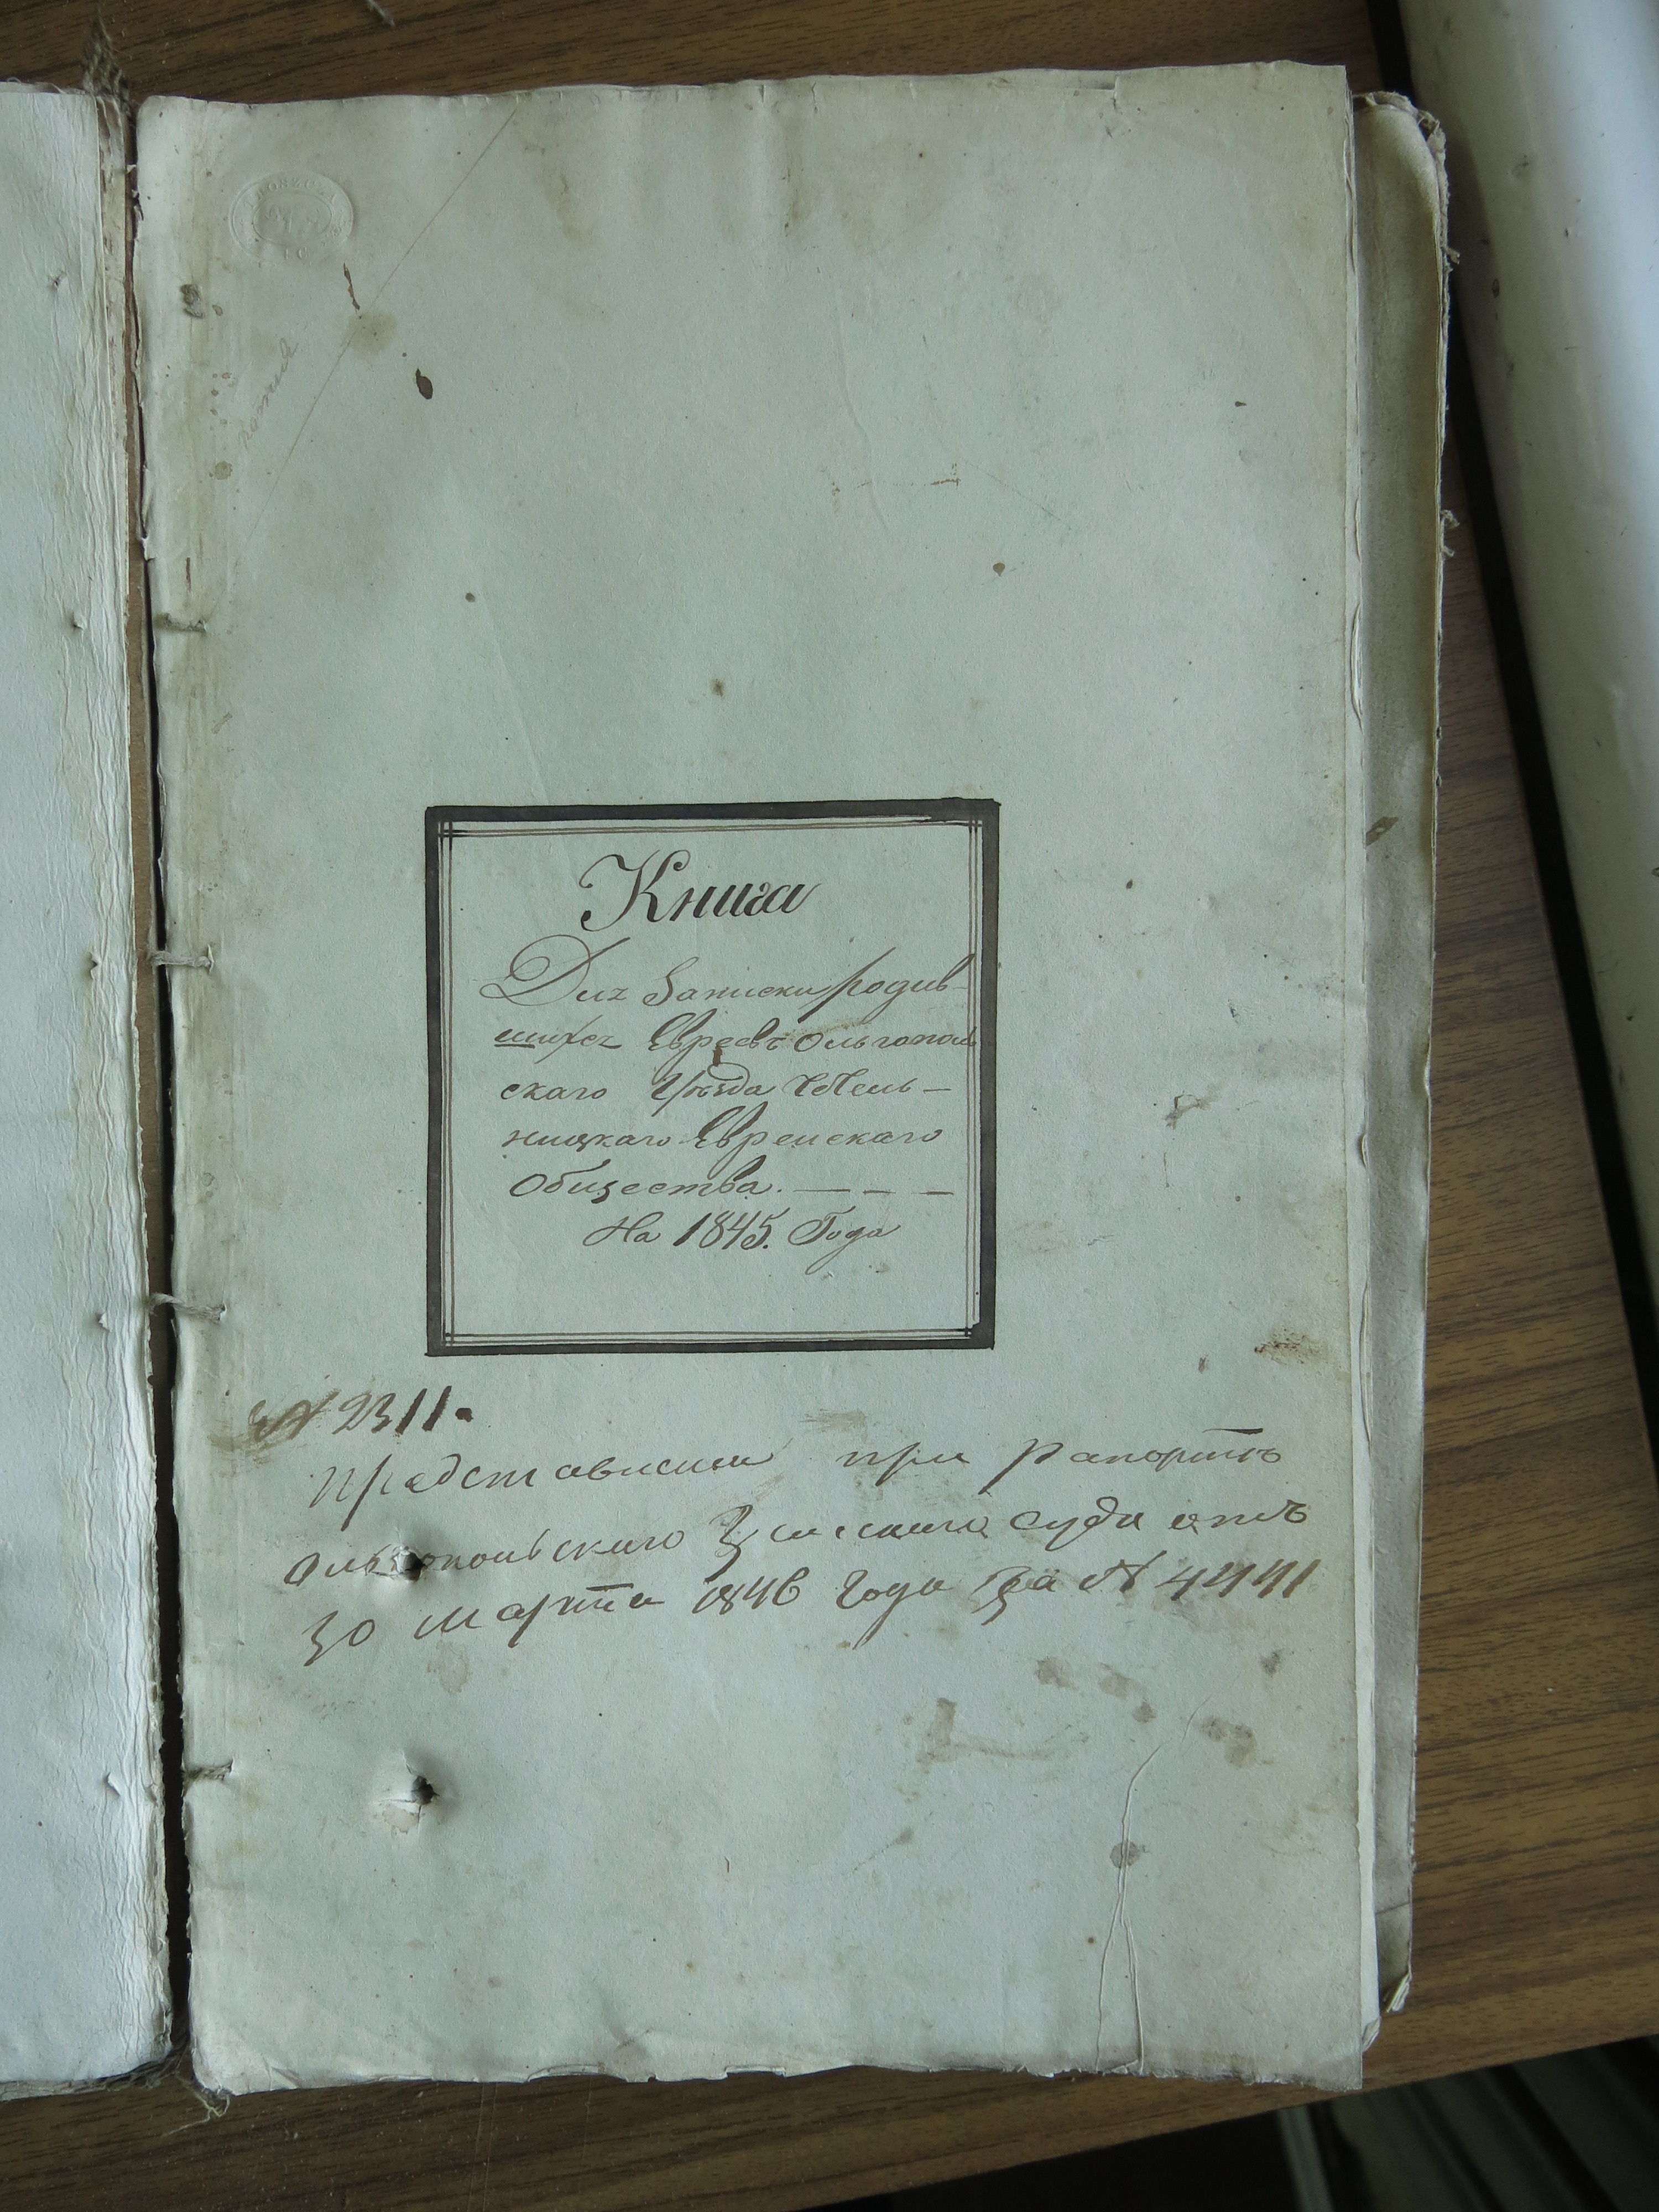 Книга
Для Записки родив-
шихся Евреевъ Ольгополь
скаго Уѣзда Чечель-
ницкаго Еврейскаго
Общества. — — —
На 1845. Года
№ 2311.
Представлена при рапортѣ
Ольгопольскаго Земскаго суда отъ
30 Марта 1846 года за № 4441